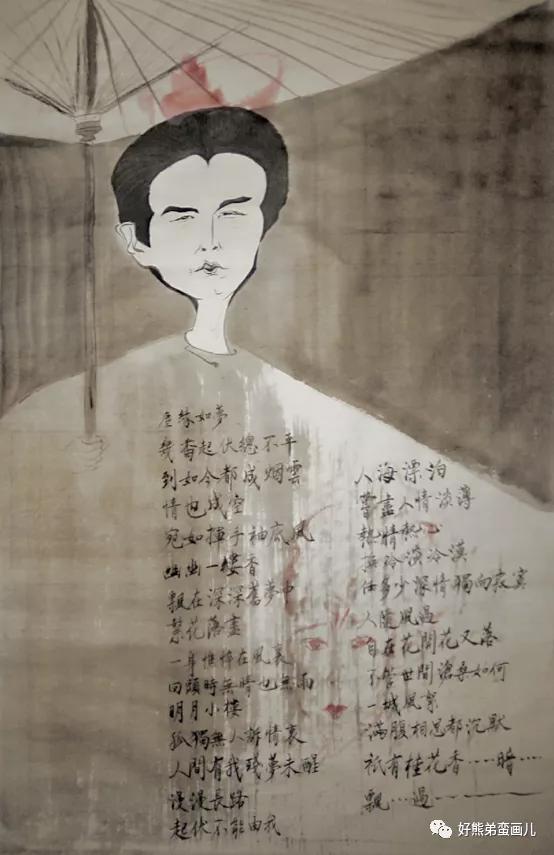 塵緣如夢
幾番起伏總不平
到如今都成烟雲
情也成空
宛如揮手袖底風
幽幽一縷香
飄在深深舊夢中
繁花落盡
一身憔悴在風裏
回頭時無情也無雨
明月小樓
孤獨無人訴情衷
人間有我殘夢未醒
漫漫長路
起伏不能由我
人海漂泊
嘗盡人情淡薄
熱情熱心
換冷淡冷漠
任多少深情獨向寂寞
人隨風過
自在花開花又落
不管世間滄桑如何
一城風絮
滿腹相思都沉默
衹有桂花香……暗……
飄…過————
好熊弟蛮画儿